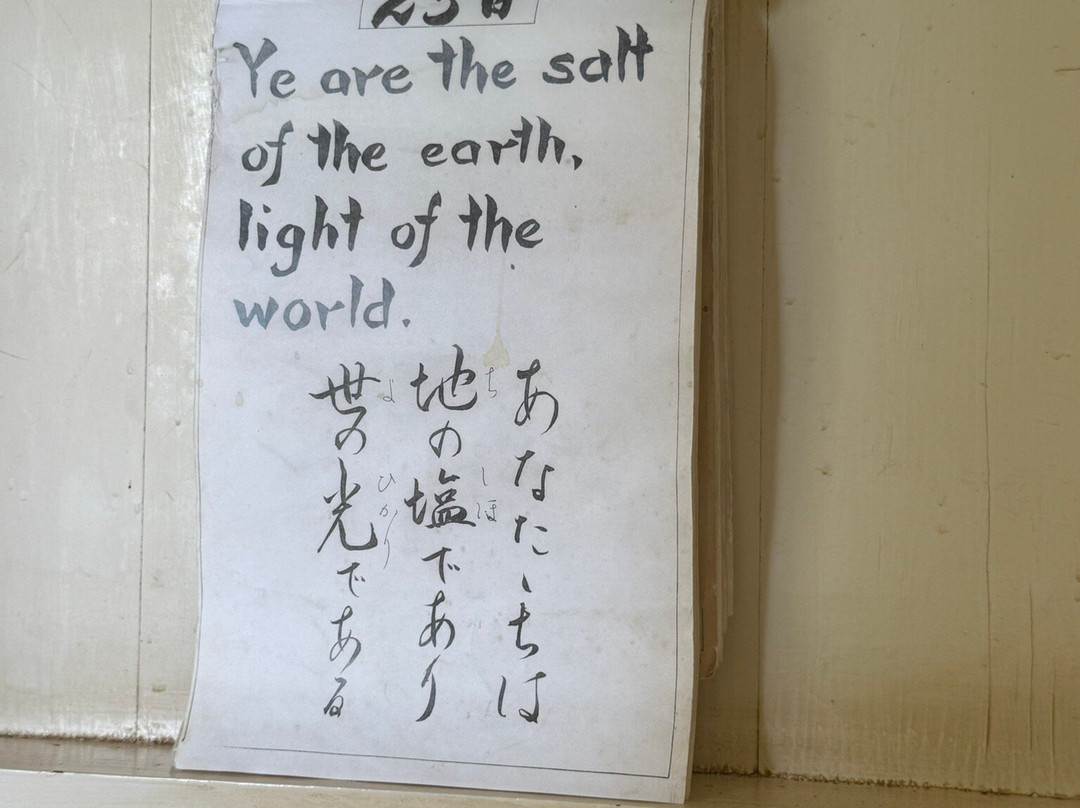 Ye are the salt
of the earth,
light of the
world.
あなたゝちは
ち しほ
地の塩であり
よ ひかり
世の光である